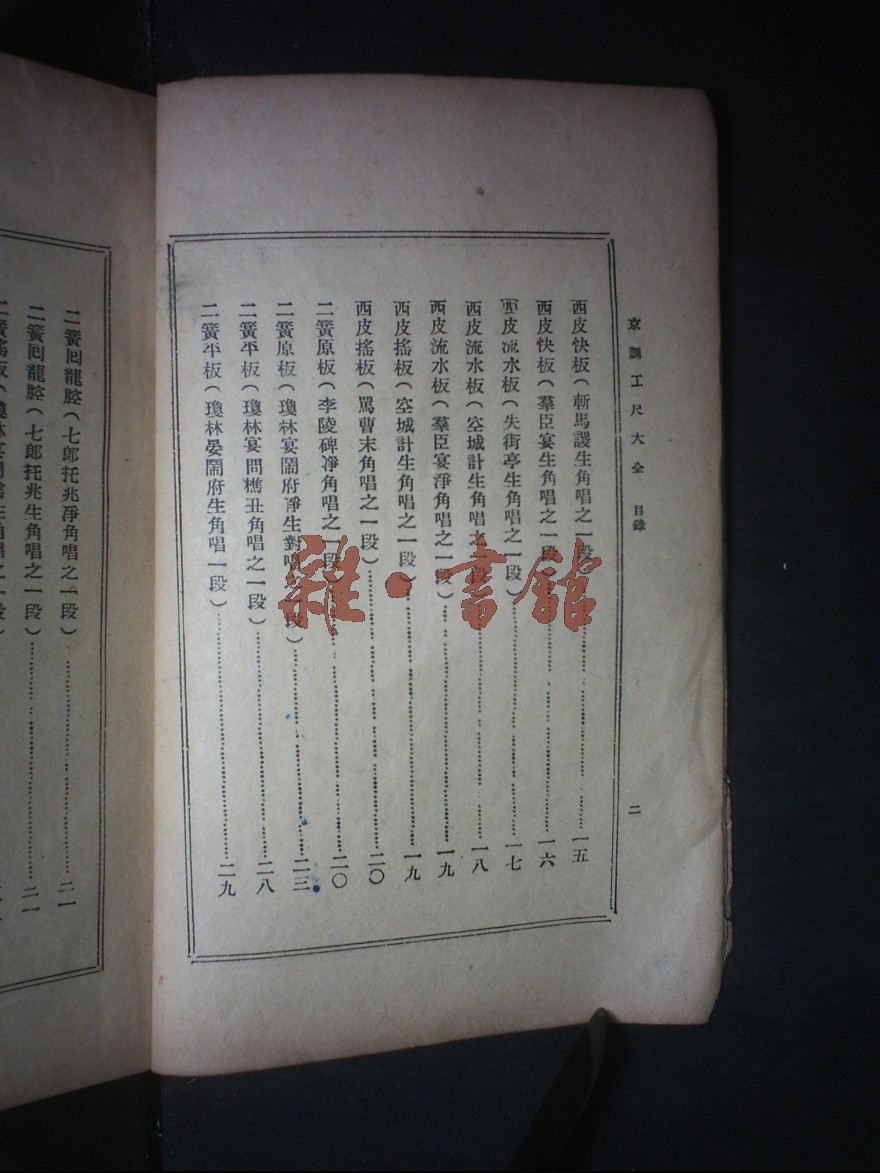 京調工尺大全 目錄
二
西皮快板(斬馬謖生角唱之一段)……一五
西皮快板(羣臣宴生角唱之一段)……一六
西皮流水板(失街亭生角唱之一段)……一七
西皮流水板(空城計生角唱之一段)……一八
西皮流水板(羣臣宴淨角唱之一段)……一九
西皮搖板(空城計生角唱之一段)……一九
西皮搖板(罵曹末角唱之一段)……二〇
二簧原板(李陵碑淨角唱之一段)……二〇
二簧原板(瓊林宴鬧府淨生對唱之一段)……二三
二簧平板(瓊林宴問樵丑角唱之一段)……二八
二簧平板(瓊林宴鬧府生角唱一段)……二九
二簧回龍腔(七郎托兆淨角唱之一段)……二一
二簧回龍腔(七郎托兆生角唱之一段)……二一
二簧搖板(瓊林宴問樵生角唱之一段)
雜·書館